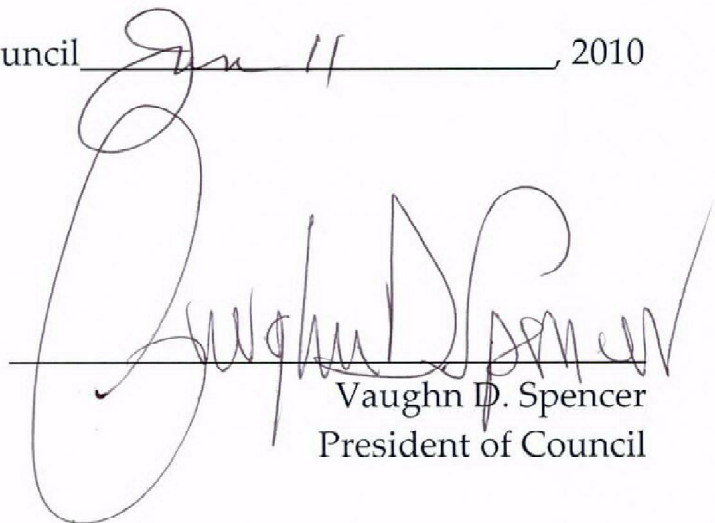 uncil Jan 11, 2010
Vaughn D Spencer
Vaughn D. Spencer
President of Council